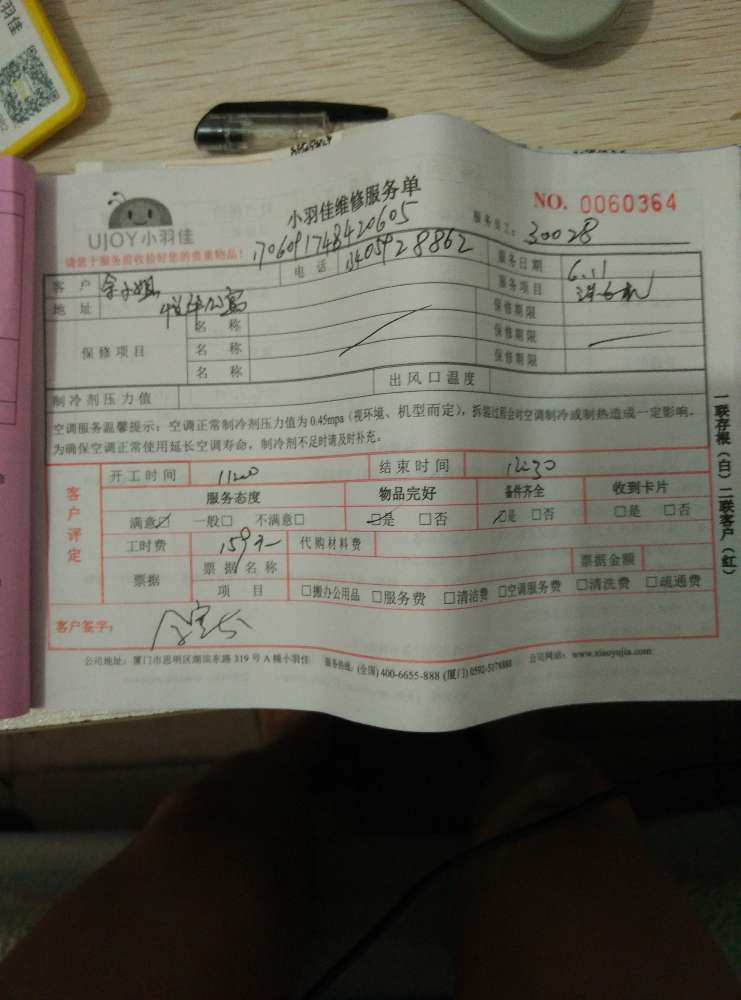 小羽佳维修服务单
NO. 0060364
UJOY小羽佳
1706091748420605
服务员工：30028
请您于服务前收捡好您的贵重物品！
客户 余小姐 电话 13405928862 服务日期 6.11
地址 服务项目
保修项目 名称 保修期限
名称 保修期限
名称 保修期限
制冷剂压力值 出风口温度
空调服务温馨提示：空调正常制冷剂压力值为0.45mpa（视环境、机型而定），拆装过程会对空调制冷或制热造成一定影响。
为确保空调正常使用延长空调寿命，制冷剂不足时请及时补充。
客户评定
开工时间 1120 结束时间 1230
服务态度 物品完好 备件齐全 收到卡片
满意☑ 一般□ 不满意□ ☑是 □否 ☑是 □否 □是 □否
工时费 159元 代购材料费
票据 票据名称 票据金额
项目 □搬办公用品 □服务费 □清洁费 □空调服务费 □清洗费 □疏通费
客户签字：
公司地址：厦门市思明区湖滨东路319号A幢小羽佳 服务热线：(全国)400-6655-888 (厦门)0592-5178888 公司网站：www.xiaoyujia.com
一联存根（白）二联客户（红）